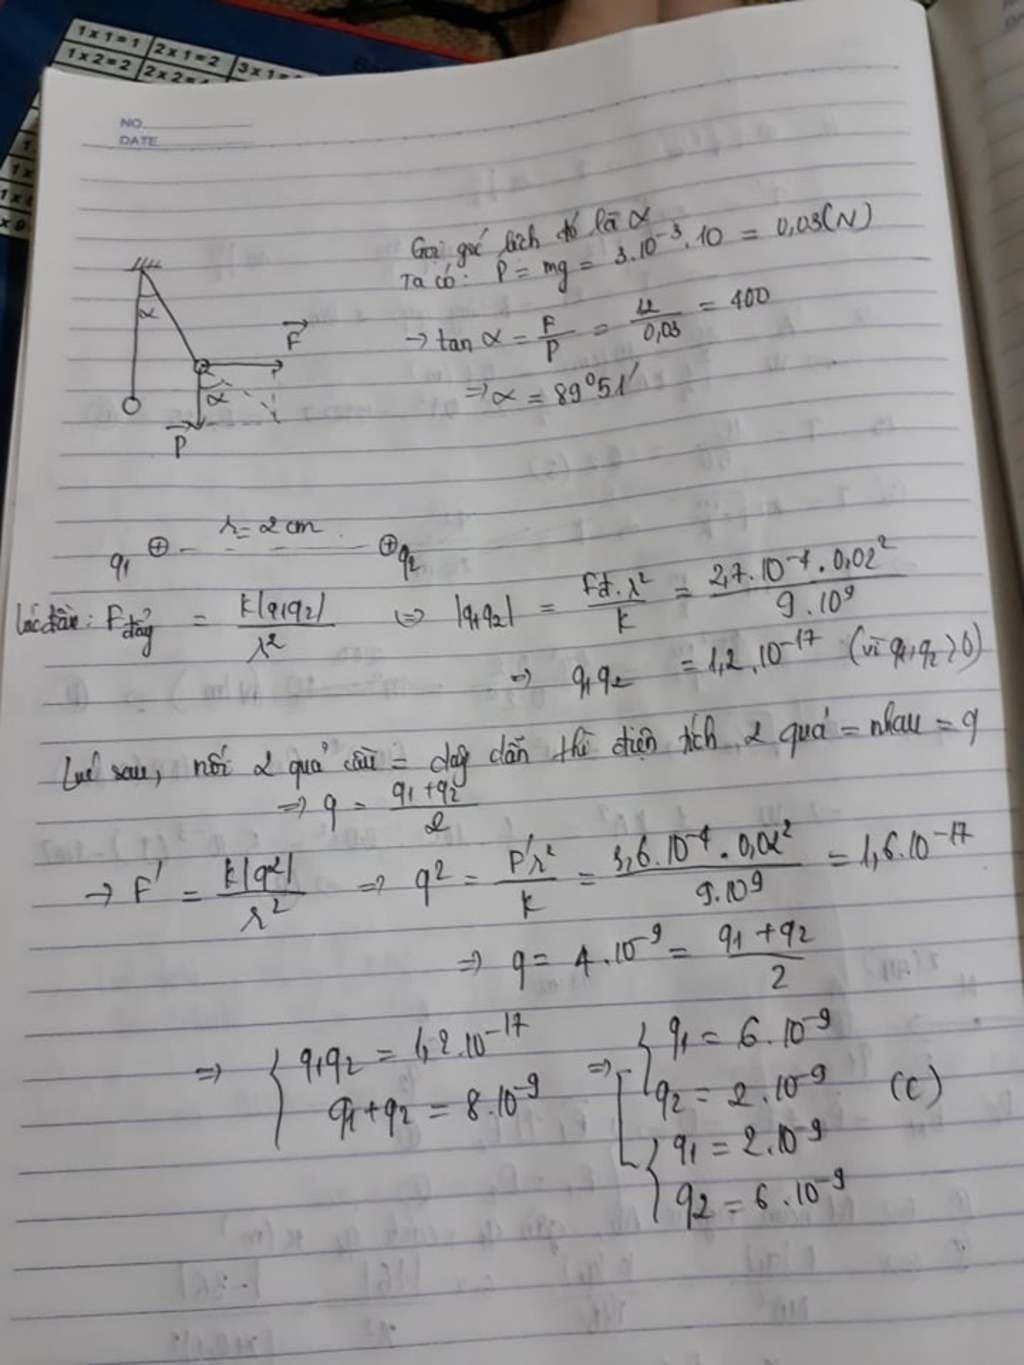 1 x 1 = 1 2 x 1 = 2 3 x 1 =
1 x 2 = 2 2 x 2 =
NO.
DATE
Gọi góc lệch đó là α
Ta có: P = mg = 3.10⁻³.10 = 0,03(N)
→ tan α = F/P = 12/0,03 = 400
⇒ α = 89⁰51'
α
F
α
P
r = 2 cm
q₁ ⊕ ⊕ q₂
Lúc đầu: Fđẩy = k|q₁q₂|/r² ⇔ |q₁q₂| = Fđ.r²/k = 2,7.10⁻⁴.0,02²/9.10⁹
⇒ q₁q₂ = 1,2.10⁻¹⁷ (vì q₁,q₂ > 0)
Lúc sau, nối 2 quả cầu = dây dẫn thì điện tích 2 quả = nhau = q
⇒ q = q₁+q₂/2
→ F' = k|q²|/r² ⇒ q² = F'r²/k = 3,6.10⁻⁴.0,02²/9.10⁹ = 1,6.10⁻¹⁷
⇒ q = 4.10⁻⁹ = q₁+q₂/2
⇒ { q₁q₂ = 1,2.10⁻¹⁷ ⇒ [ { q₁ = 6.10⁻⁹
q₁+q₂ = 8.10⁻⁹ q₂ = 2.10⁻⁹ (C)
{ q₁ = 2.10⁻⁹
q₂ = 6.10⁻⁹